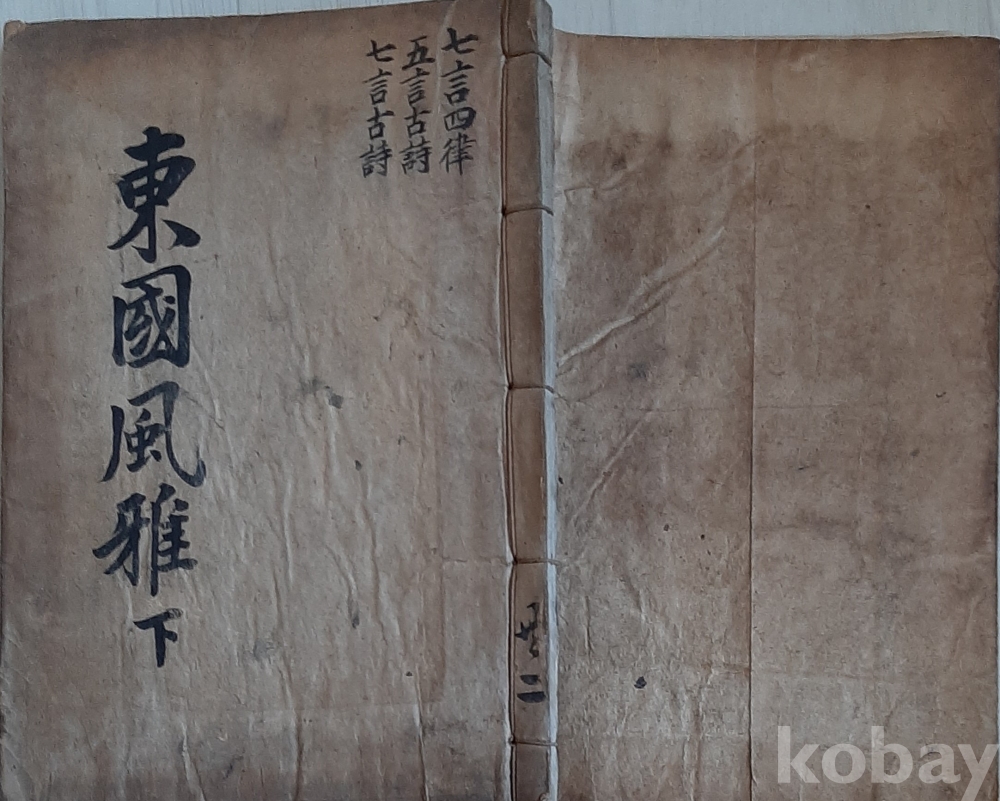 七言四律
五言古詩
七言古詩
東國風雅 下
共二
kobay